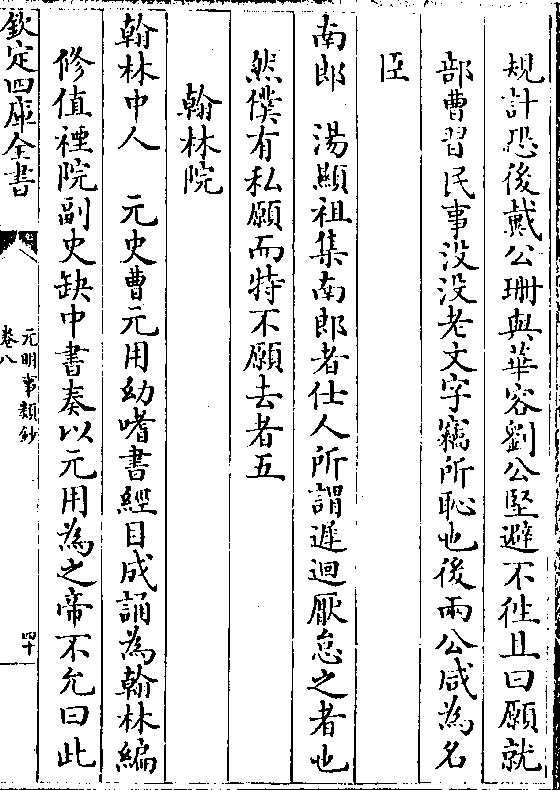 規計恐後戴公珊與華容劉公堅避不徃且曰願就
部曹習民事没没老文字竊所恥也後兩公咸為名
臣
南郎　湯顯祖集南郎者仕人所謂遲迴厭怠之者也
然僕有私願而特不願去者五
翰林院
翰林中人　元史曹元用幼嗜書經目成誦為翰林編
修值禋院副史缺中書奏以元用為之帝不允曰此
欽定四庫全書
元明事類鈔
卷八
四十